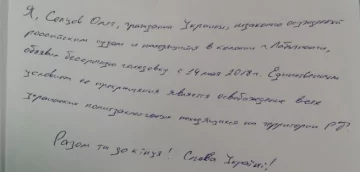 Я, Сенцов Олег, гражданин Украины, незаконно осужденный
российским судом и находящийся в колонии г. Лабытнанги,
объявил бессрочную голодовку с 14 мая 2018 г. Единственным
условием ее прекращения является освобождение всех
украинских политзаключенных находящихся на территории РФ
Разом і до кінця! Слава Україні!